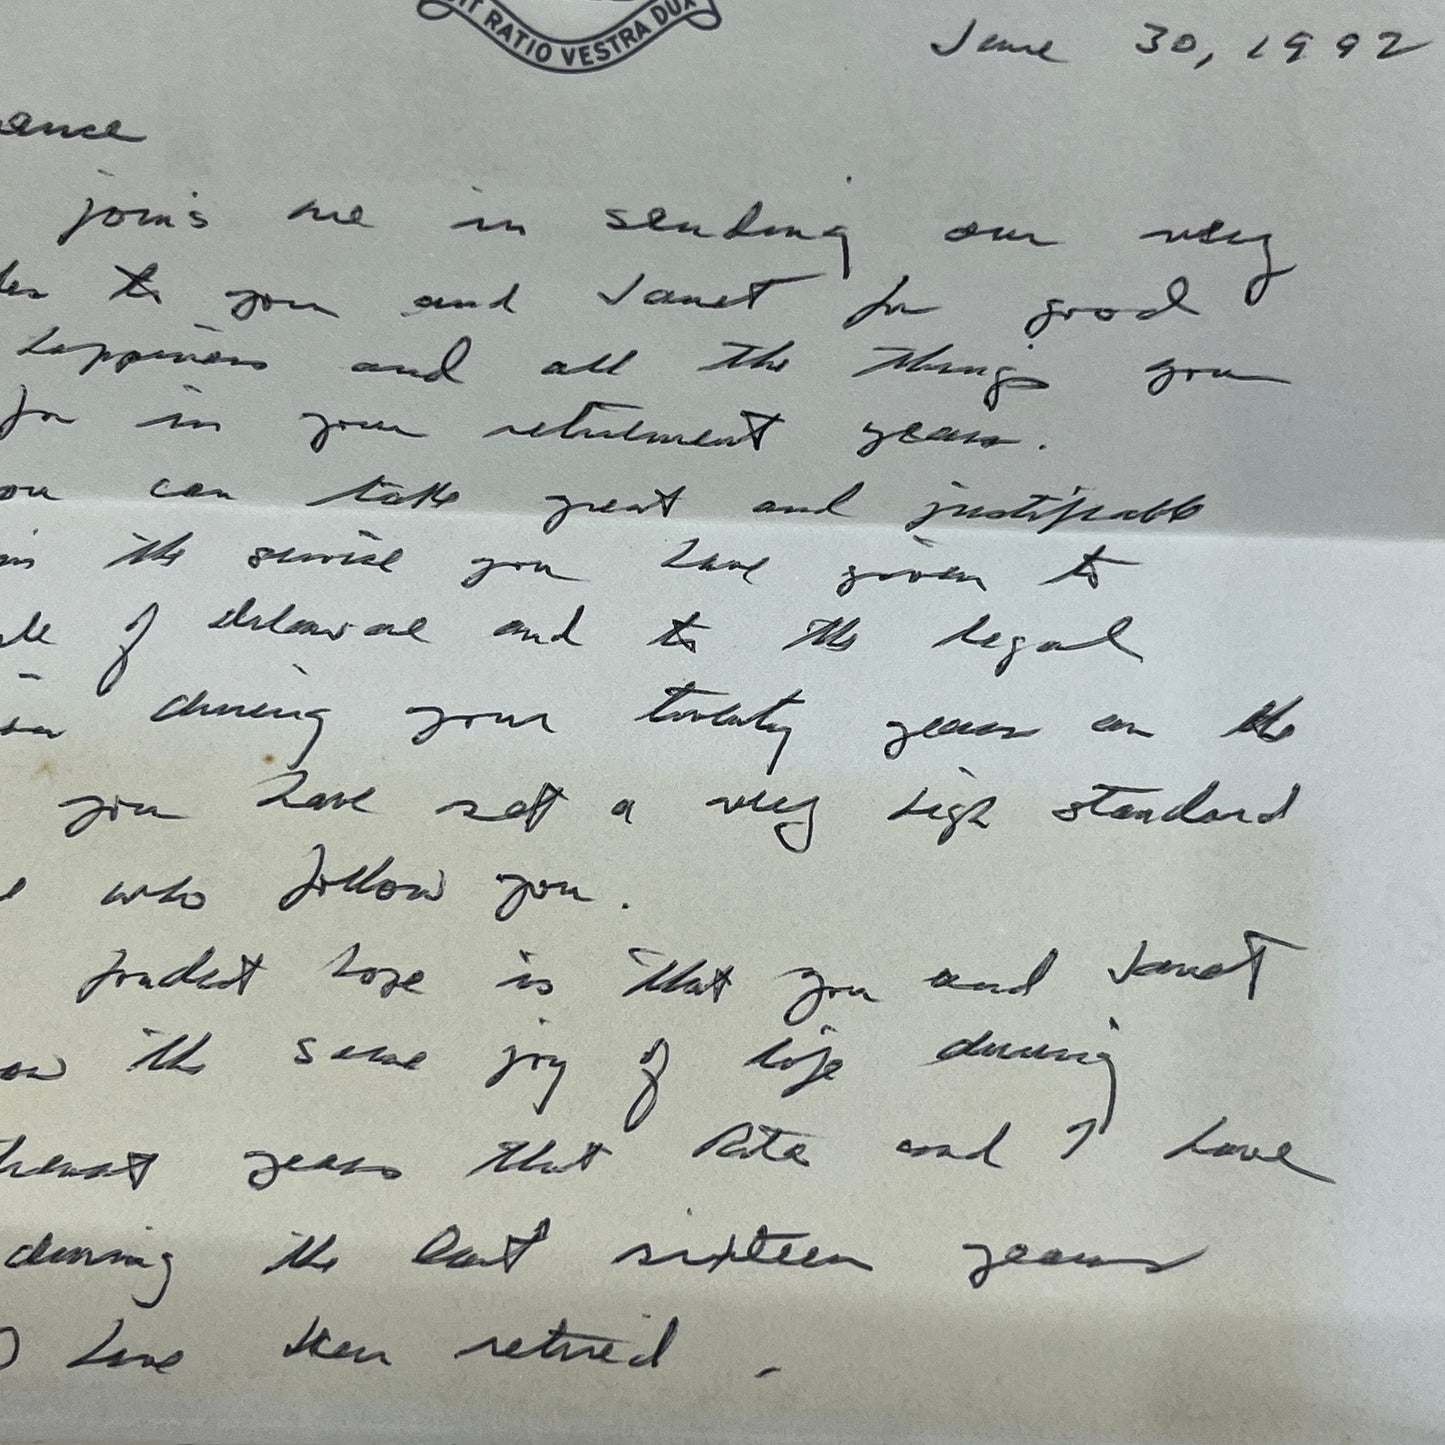 IT RATIO VESTRA DUX
June 30, 1992
joins me in sending our very
to you and Janet for good
happiness and all the things you
for in your retirement years.
can take great and justifiable
in the service you have given to
of Delaware and to the legal
during your twenty years on the
you have set a very high standard
who follow you.
fondest hope is that you and Janet
the same joy of life during
years that Rita and I have
during the last sixteen years
I have been retired.